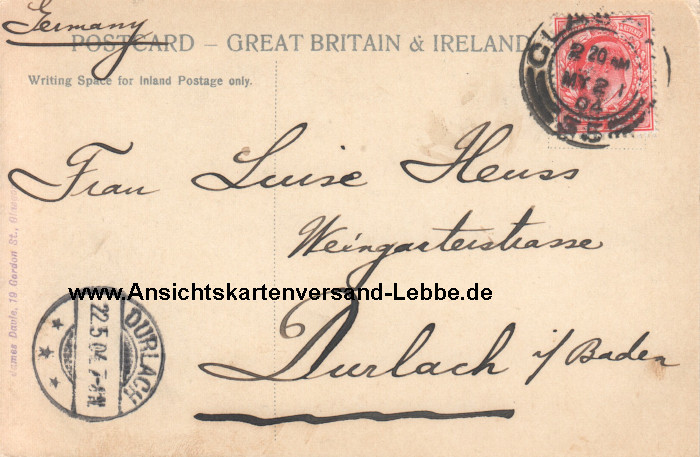 Germany
POSTCARD – GREAT BRITAIN & IRELAND
Writing Space for Inland Postage only.
2 20
MY 21
04
Frau Luise Heuss
Weingarterstrasse
6
www.Ansichtskartenversand-Lebbe.de
Durlach i/Baden
DURLACH
22.5.04.7-8N
James Davie, 19 Gordon St.,